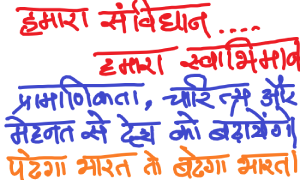 हमारा संविधान....
हमारा स्वाभिमान
प्रामाणिकता, चरित्र और
मेहनत से देश को बढ़ायेंगे।
पढेगा भारत तो बढेगा भारत।